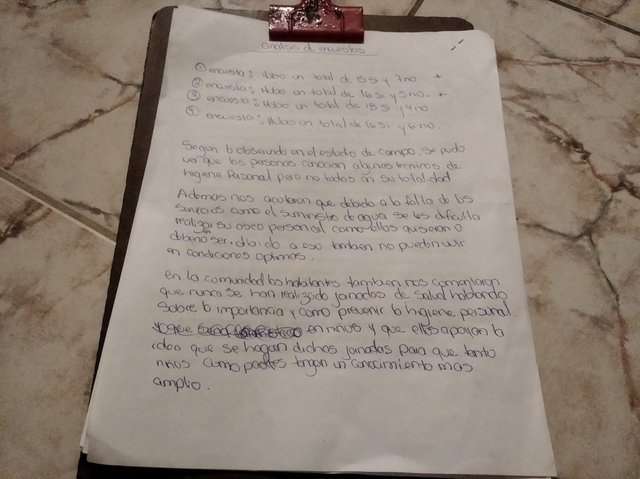 analisis de encuestas
① encuesta: Hubo un total de 15 Si y 7 no
② encuesta: Hubo un total de 16 si y 5 no
③ encuesta: Hubo un total de 18 Si y 4 no
④ encuesta: Hubo un total de 16 si y 6 no
Segun lo observando en el estudio de campo, se pudo
ver que las personas conocian algunas tecnicas de
higiene Personal pero no todas en su totalidad
Ademas nos acotaron que debido a la falla de los
servicios como el suministro de agua se les dificulta
realizar su aseo personal como ellos quisieran o
deberia ser, debido a eso tambien no pueden vivir
en condiciones optimas.
En la comunidad los habitantes tambien nos comentaron
que nunca se han realizado jornadas de salud hablando
sobre la importancia y como prevenir la higiene personal
en niños y que ellos apoyan la
idea que se hagan dichas jornadas para que tanto
niños como padres tengan un conocimiento mas
amplio.